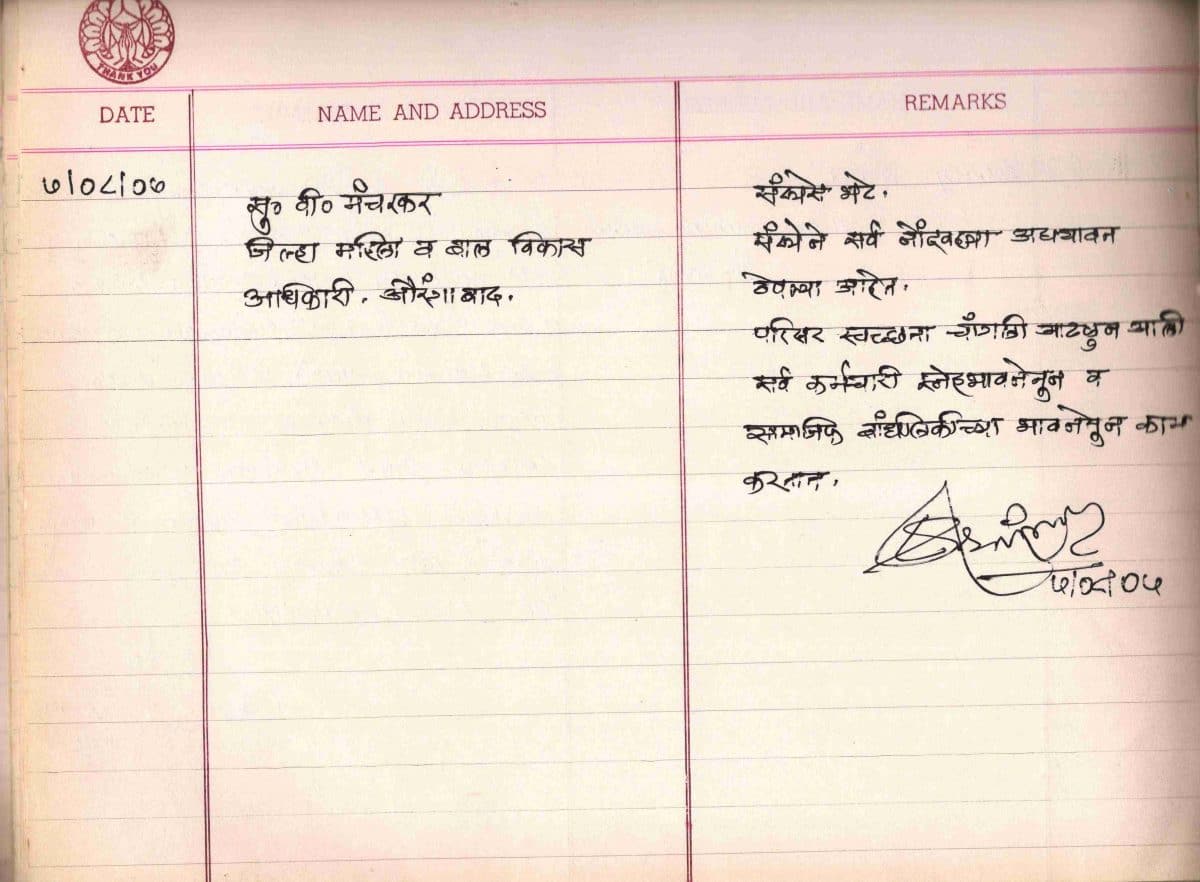 THANK YOU
DATE
NAME AND ADDRESS
REMARKS
७/०८/०७
सु० वी० मंचरकर
जिल्हा महिला व बाल विकास
अधिकारी. औरंगाबाद.
संस्थेस भेट.
संस्थेने सर्व नोंदवह्या अद्ययावत
ठेवल्या आहेत.
परिसर स्वच्छता चांगली वाटली
सर्व कर्मचारी स्नेहभावनेतून व
सामाजिक बांधिलकीच्या भावनेतून काम
करतात.